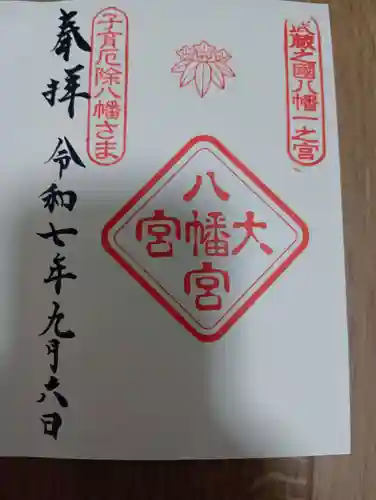 武蔵之國八幡一之宮
大宮
八幡宮
子育厄除八幡さま
奉拝
令和七年九月六日